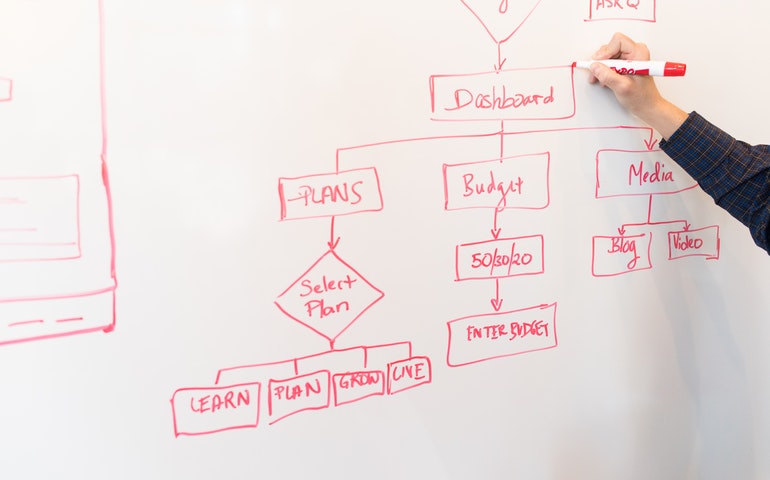 ASK Q
Dashboard
PLANS
Budget
Media
Select
Plan
50/30/20
Blog
Video
ENTER BUDGET
LEARN
PLAN
GROW
LIVE